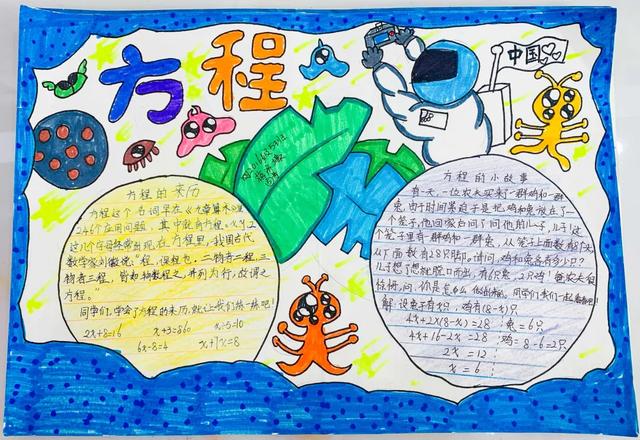 方程
中国
方程的来历
方程这个名词早在《九章算术》里
246个应用问题，其中就有方程。x、y、z
这几个字母经常出现在方程里，我国古代
数学家刘徽说“程，课程也，二物者二程，三
物者三程，皆如物数程之，并列为行，故谓之
方程。”
同学们，学会了方程的来历，就让我们练一练吧！
2x+8=16
x+3=860
x÷5=10
6x-8=4
方程的小故事
有一天，一位农夫买来一群鸡和一群
兔，由于时间紧迫于是把鸡和兔放在了一
个笼子，他回家后问了问他的儿子，儿子这
个笼子里有一群鸡和一群兔，从笼子上面数有8个头
从下面数有28只脚。请问，鸡和兔各有多少只？
儿子想了想就脱口而出，有6只兔，2只鸡！
问，你是怎么做出来的。同学们我们一起
解：设兔子有x只，鸡有(8-x)只。
4x+2x(8-x)=28 兔=6只
4x+16-2x=28 鸡=8-6=2只
2x=12
x=6